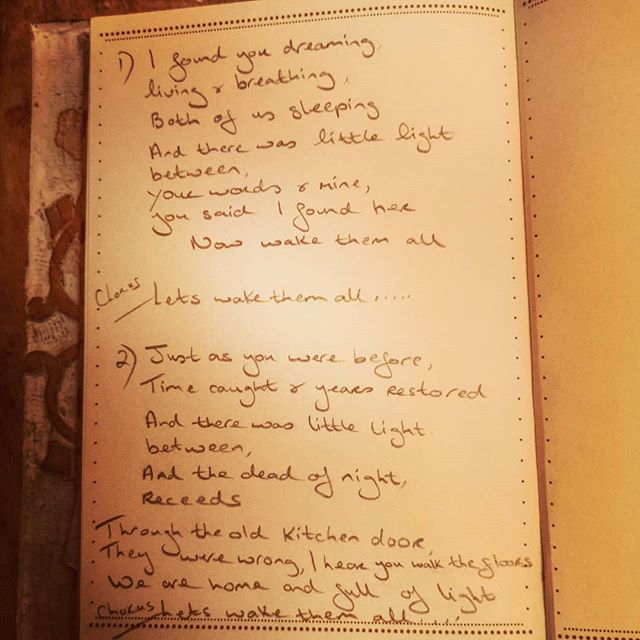 1) I found you dreaming,
living & breathing,
Both of us sleeping
And there was little light
between,
Your words & mine,
you said I found her
Now wake them all
Chorus Lets wake them all.....
2) Just as you were before,
Time caught & years restored
And there was little light
between,
And the dead of night,
Receeds
Through the old kitchen door,
They were wrong, I hear you walk the floors
We are home and full of light
Chorus Lets wake them all.....